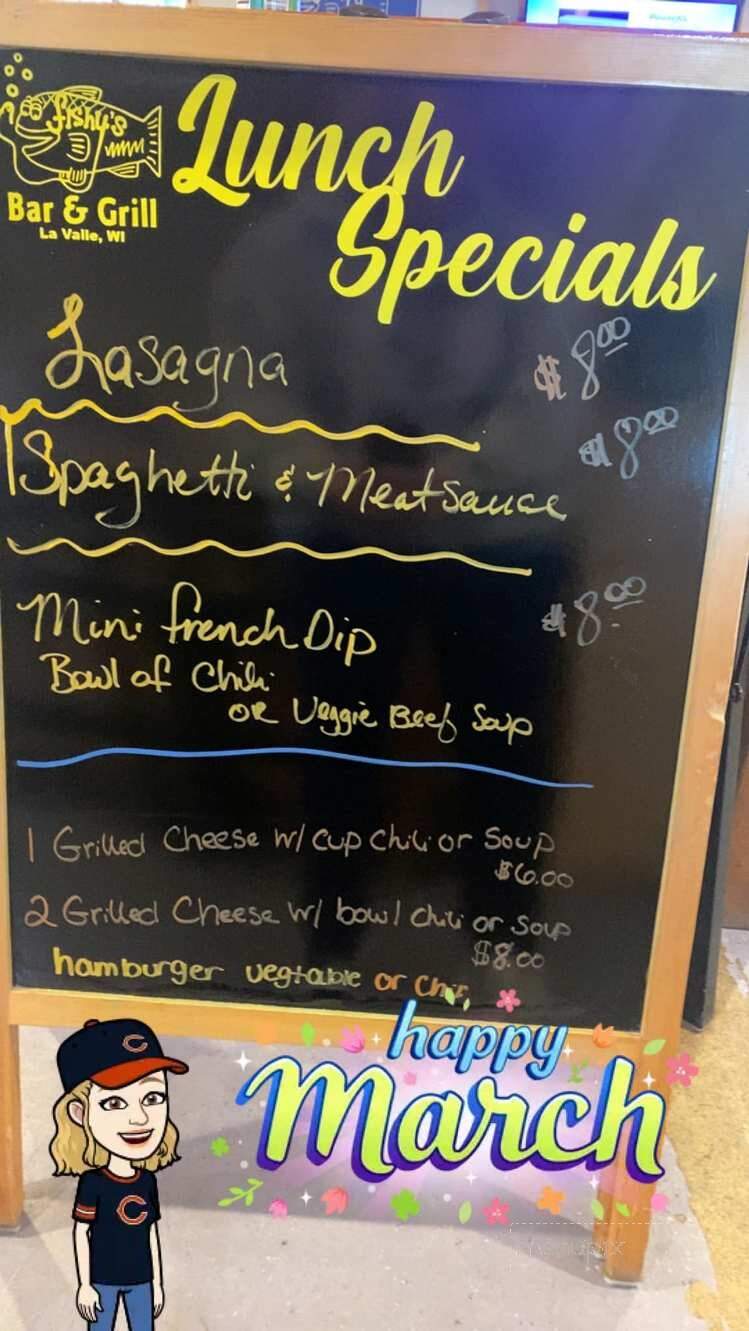 fishy's
Bar & Grill
La Valle, WI
Lunch
Specials
Lasagna $8.00
Spaghetti & Meatsauce $8.00
Mini French Dip $8.00
Bowl of Chili
OR Veggie Beef Soup
1 Grilled Cheese w/ cup chili or Soup
$6.00
2 Grilled Cheese w/ bowl chili or soup
$8.00
hamburger vegtable or
happy
March
C
C